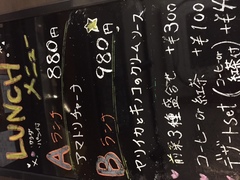 LUNCH メニュー
A ランチ 880円
アマトリチャーナ
B ランチ 980円
ヤリイカとキノコのクリームソース
前菜3種盛合せ ¥300
コーヒーor紅茶 +¥100
デザートSet (コーヒーor紅茶付) +¥4